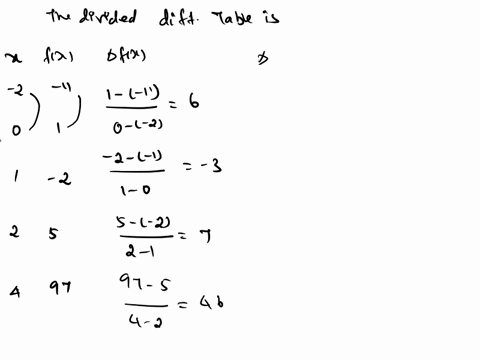 The divided diff. Table is
x f(x) Δf(x) Δ
-2 -11 1-(-11) / 0-(-2) = 6
0 1
1 -2 -2-(-1) / 1-0 = -3
2 5 5-(-2) / 2-1 = 7
4 97 97-5 / 4-2 = 46